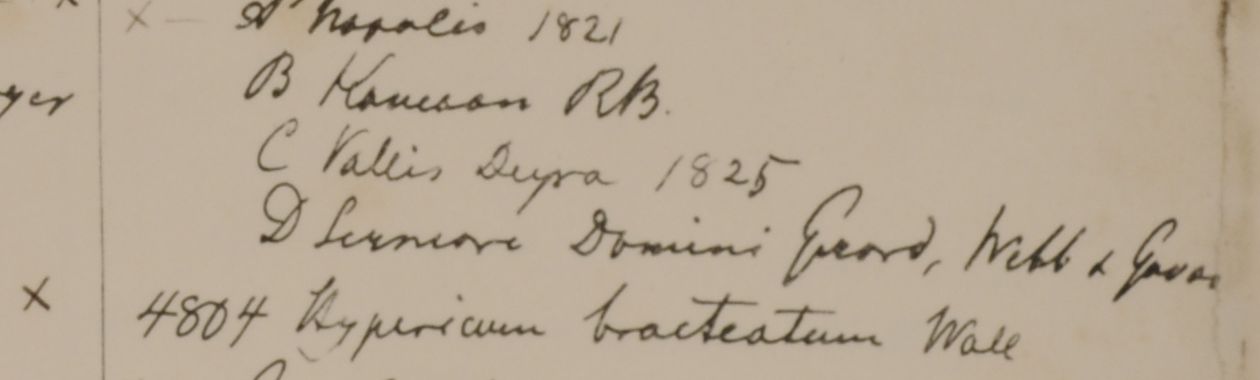 A Napalis 1821
B Kamaon RB.
C Vallis Deyra 1825
D Sirmore Domini Gerard, Webb & Govan
yer
4804 Hypericum bracteatum Wall